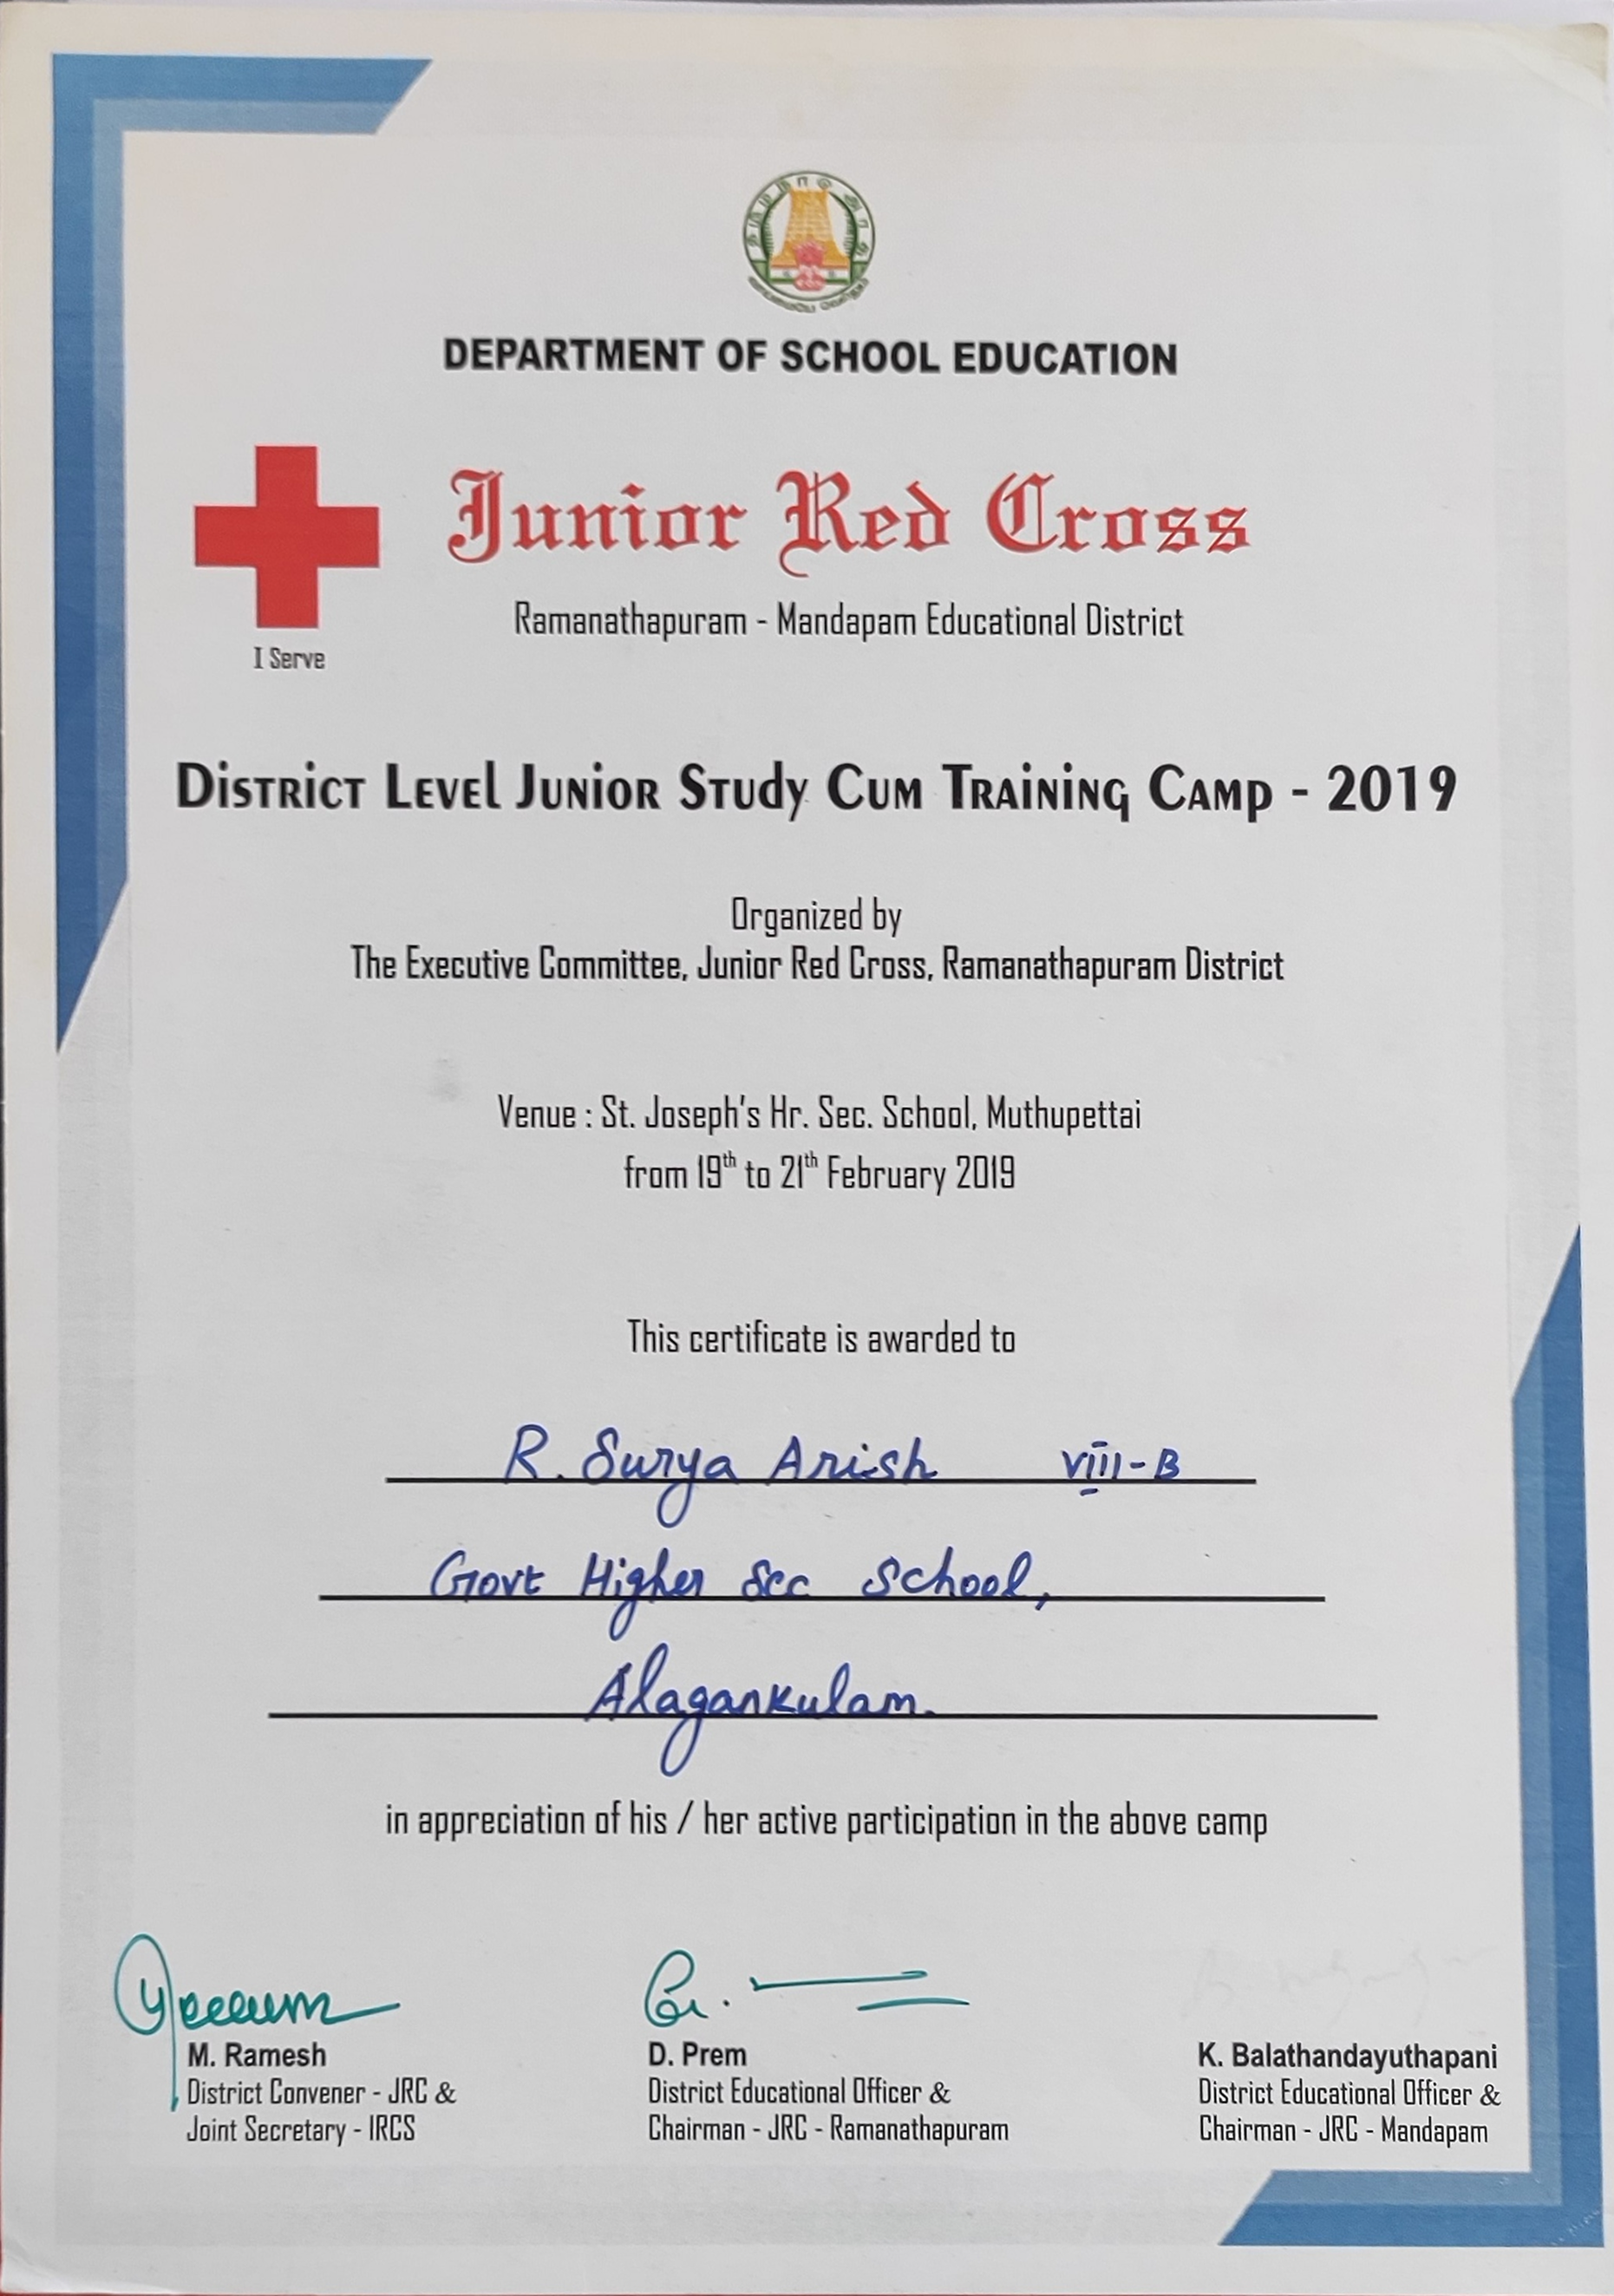 தமிழ்நாடு அரசு
வாய்மையே வெல்லும்
DEPARTMENT OF SCHOOL EDUCATION
Junior Red Cross
Ramanathapuram - Mandapam Educational District
I Serve
District Level Junior Study Cum Training Camp - 2019
Organized by
The Executive Committee, Junior Red Cross, Ramanathapuram District
Venue : St. Joseph's Hr. Sec. School, Muthupettai
from 19th to 21th February 2019
This certificate is awarded to
R. Surya Arish VIII-B
Govt Higher Sec School,
Alagankulam.
in appreciation of his / her active participation in the above camp
M. Ramesh
District Convener - JRC &
Joint Secretary - IRCS
D. Prem
District Educational Officer &
Chairman - JRC - Ramanathapuram
K. Balathandayuthapani
District Educational Officer &
Chairman - JRC - Mandapam